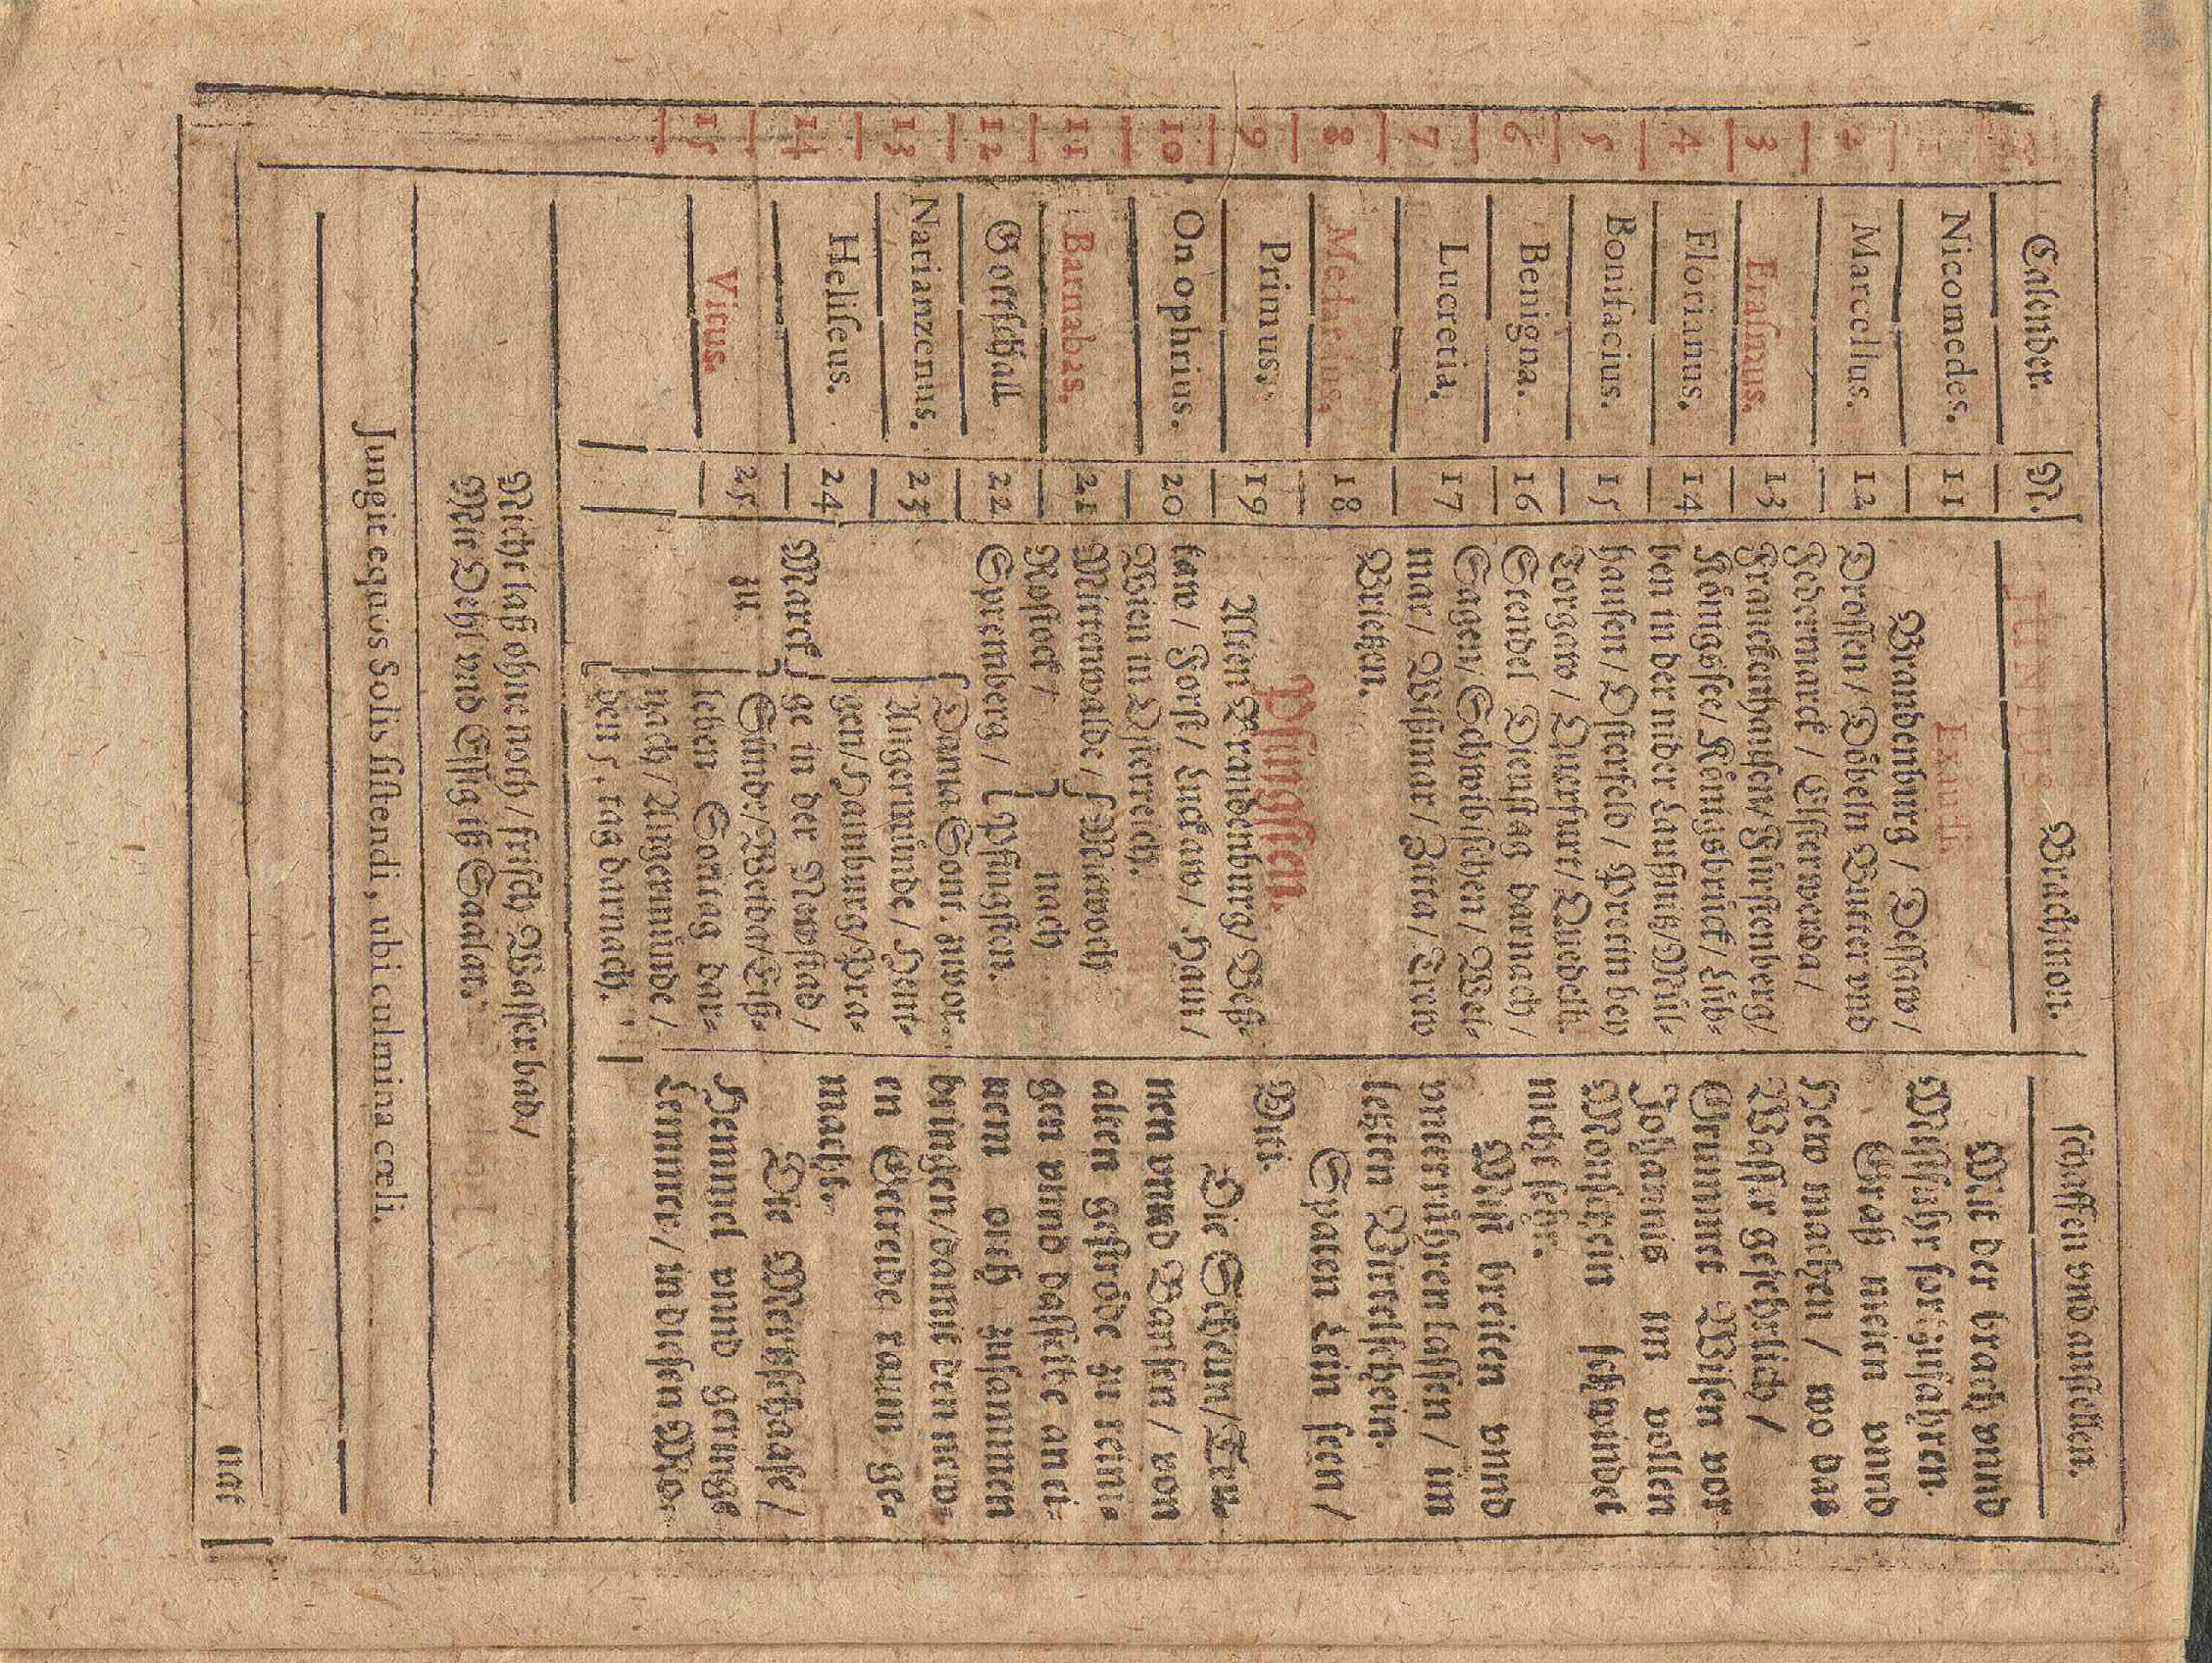 Calender.
N.
Brachmon.
schaffen vnd anstellen.
Nicomedes.
11
2
Marcellus.
12
3
Erasmus.
13
4
Florianus.
14
5
Bonifacius.
15
6
Benigna.
16
7
Lucretia.
17
8
Medardus.
18
9
Primus.
19
10
Onophrius.
20
11
Barnabas.
21
12
Gottschall
22
13
Narianzenus.
23
14
Heliseus.
24
15
Vitus.
25
Exaudi.
Brandenburg / Dessaw /
Drossen / Döbeln Butter vnd
Jederman / Elsterwerda /
Franckenhausen / Fürstenberg /
Königssee / Königsbrück / Lüb-
ben in der nider Laußnitz / Mül-
hausen / Osterfeld / Prettin bey
Torgaw / Querfurt / Quedelb.
Stendel Dienstag darnach /
Sagen / Schwibischen / Wei-
mar / Wißmar / Zitta / Trew
Brietzen.
Pfingsten.
Alten Brandenburg / Beß-
kow / Forst / Luckaw / Hain /
Wien in Osterreich.
Mittenwalde / Mitwoch
Rostock / nach
Spremberg / Pfingsten.
Danna Sont. zuvor.
Angermünde / Hent-
gen / Hamburg / Pra-
Marck ge in der Newstad /
zu Sünde / Weida / Eiß-
leben Sontag dar-
nach / Angermünde /
den 5. tag darnach.
Mit der brach vnnd
Mistfuhr fortzufahren.
Graß meien vnnd
Hew machen / wo das
Wasser gefehrlich /
Grummet Wisen vor
Johannis im vollen
Monschein schwindet
nicht sehr.
Mist breiten vnnd
vntereühren lassen / im
letzten Virtelschein.
Spaten Lein seen /
Viti.
Die Scheun / Ten-
nen vnnd Bansen / von
alten geströde zu reini-
gen vnnd dasselbe an ei-
nem orth zusammen
bringen / damit dem new-
en Getreide raum ge-
macht.
Die Merkschaafe /
Hemmel vnnd geringe
Lemmer / in diesen Mo-
nat
Nicht laß ohne noch / frisch Wasser bad /
Mit Oehl vnd Essig iß Saalat.
Jungit equos Solis sistendi, ubi culmina cœli.